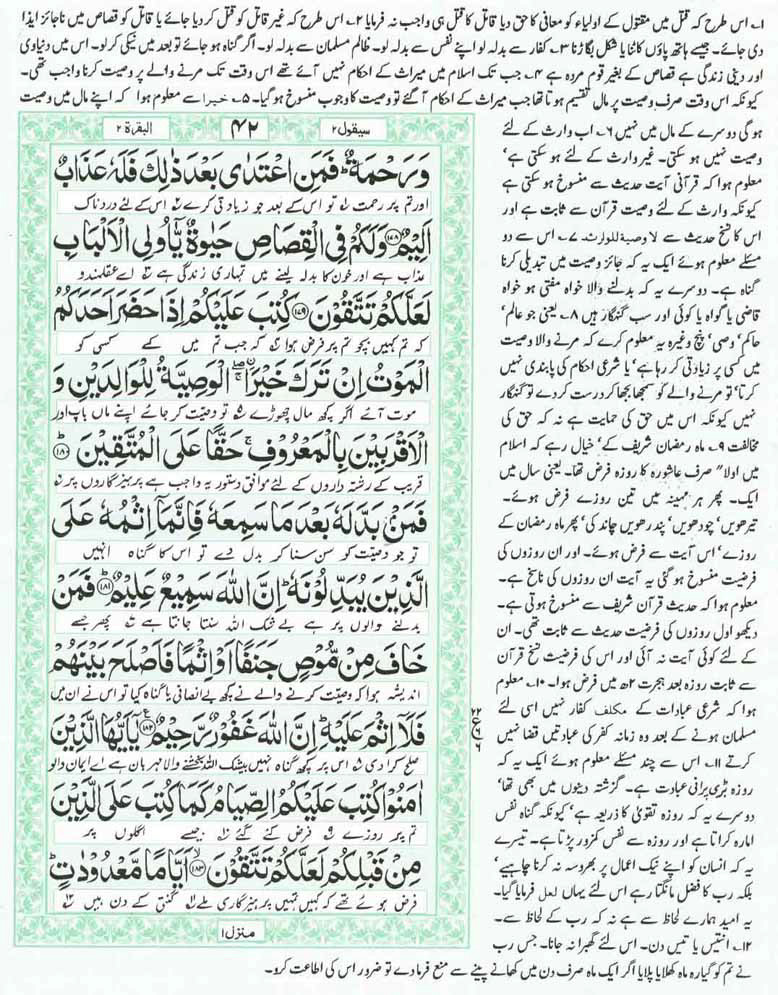 ۱۔ اس طرح کہ قتل میں مقتول کے اولیاء کو معافی کا حق دیا قاتل کا قتل ہی واجب نہ فرمایا ۲۔ اس طرح کہ غیر قاتل کو قتل کر دیا جائے یا قاتل کو قصاص میں ناجائز ایذا
دی جائے۔ جیسے ہاتھ پاؤں کاٹنا یا شکل بگاڑنا ۳۔ کفار سے بدلہ لو اپنے نفس سے بدلہ لو۔ ظالم مسلمان سے بدلہ لو۔ اگر گناہ ہو جائے تو بعد میں نیکی کر لو۔ اس میں دنیاوی
اور دینی زندگی ہے قصاص کے بغیر قوم مردہ ہے ۴۔ جب تک اسلام میں میراث کے احکام نہیں آئے تھے اس وقت تک مرنے والے پر وصیت کرنا واجب تھی۔
کیونکہ اس وقت صرف وصیت پر مال تقسیم ہوتا تھا جب میراث کے احکام آ گئے تو وصیت کا وجوب منسوخ ہو گیا۔ ۵۔ خیرا سے معلوم ہوا کہ اپنے مال میں وصیت
ہو گی دوسرے کے مال میں نہیں ۶۔ اب وارث کے لئے
وصیت نہیں ہو سکتی۔ غیر وارث کے لئے ہو سکتی ہے'
معلوم ہوا کہ قرآنی آیت حدیث سے منسوخ ہو سکتی ہے
کیونکہ وارث کے لئے وصیت قرآن سے ثابت ہے اور
اس کا نسخ حدیث سے لا وصیة للوارث ۷۔ اس سے دو
مسئلے معلوم ہوئے ایک یہ کہ جائز وصیت میں تبدیلی کرنا
گناہ ہے۔ دوسرے یہ کہ بدلنے والا خواہ مفتی ہو خواہ
قاضی یا گواہ یا کوئی اور سب گنہگار ہیں ۸۔ یعنی جو عالم'
حاکم' وصی' پنچ وغیرہ یہ معلوم کرے کہ مرنے والا وصیت
میں کسی پر زیادتی کر رہا ہے' یا شرعی احکام کی پابندی نہیں
کرتا' تو مرنے والے کو سمجھا بجھا کر درست کر دے تو گنہگار
نہیں کیونکہ اس میں حق کی حمایت ہے نہ کہ حق کی
مخالفت ۹۔ ماہ رمضان شریف کے' خیال رہے کہ اسلام
میں اولا" صرف عاشورہ کا روزہ فرض تھا۔ یعنی سال میں
ایک۔ پھر ہر مہینہ میں تین روزے فرض ہوئے۔
تیرھویں' چودھویں' پندرھویں چاند کی' پھر ماہ رمضان کے
روزے' اس آیت سے فرض ہوئے۔ اور ان روزوں کی
فرضیت منسوخ ہو گئی یہ آیت ان روزوں کی ناسخ ہے۔
معلوم ہوا کہ حدیث قرآن شریف سے منسوخ ہوتی ہے۔
دیکھو اول روزوں کی فرضیت حدیث سے ثابت تھی۔ ان
کے لئے کوئی آیت نہ آئی اور اس کی فرضیت نسخ قرآن
سے ثابت روزہ بعد ہجرت ۲ھ میں فرض ہوا۔ ۱۰۔ معلوم
ہوا کہ شرعی عبادات کے مکلف کفار نہیں اسی لئے
مسلمان ہونے کے بعد وہ زمانہ کفر کی عبادتیں قضا نہیں
کرتے ۱۱۔ اس سے چند مسئلے معلوم ہوئے ایک یہ کہ
روزہ بڑی پرانی عبادت ہے۔ گزشتہ دینوں میں بھی تھا'
دوسرے یہ کہ روزہ تقویٰ کا ذریعہ ہے' کیونکہ گناہ نفس
امارہ کراتا ہے اور روزہ سے نفس کمزور پڑتا ہے۔ تیسرے
یہ کہ انسان کو اپنے نیک اعمال پر بھروسہ نہ کرنا چاہیے'
بلکہ رب کا فضل مانگتا رہے اس لئے یہاں لعل فرمایا گیا۔
یہ امید ہمارے لحاظ سے ہے نہ کہ رب کے لحاظ سے۔
۱۲۔ انتیس یا تیس دن۔ اس لئے گھبرا نہ جانا۔ جس رب
نے تم کو گیارہ ماہ کھلایا پلایا اگر ایک ماہ صرف دن میں کھانے پینے سے منع فرما دے تو ضرور اس کی اطاعت کرو۔
سیقول ۲ ۴۲ البقرة ۲
وَرَحْمَةٌ ؕ فَمَنِ اعْتَدٰى بَعْدَ ذٰلِكَ فَلَهٗ عَذَابٌ
اور تم پر رحمت ۱ تو اس کے بعد جو زیادتی کرے ۲ اس کے لئے دردناک
اَلِيْمٌ ﴿۱۷۸﴾ وَلَكُمْ فِي الْقِصَاصِ حَيٰوةٌ يّٰۤاُولِي الْاَلْبَابِ
عذاب ہے اور خون کا بدلہ لینے میں تمہاری زندگی ہے ۳ اے عقلمندو
لَعَلَّكُمْ تَتَّقُوْنَ ﴿۱۷۹﴾ كُتِبَ عَلَيْكُمْ اِذَا حَضَرَ اَحَدَكُمُ
کہ تم کہیں بچو تم پر فرض ہوا ۴ کہ جب تم میں کسی کو
الْمَوْتُ اِنْ تَرَكَ خَيْرًا ۖۚ اۨلْوَصِيَّةُ لِلْوَالِدَيْنِ وَ
موت آئے اگر کچھ مال چھوڑے ۵ تو وصیت کر جائے اپنے ماں باپ اور
الْاَقْرَبِيْنَ بِالْمَعْرُوْفِ ۚ حَقًّا عَلَى الْمُتَّقِيْنَ ﴿۱۸۰﴾ؕ
قریب کے رشتہ داروں کے لئے موافق دستور یہ واجب ہے پرہیزگاروں پر ۶
فَمَنْۢ بَدَّلَهٗ بَعْدَ مَا سَمِعَهٗ فَاِنَّمَاۤ اِثْمُهٗ عَلَى
تو جو وصیت کو سن سنا کر بدل دے تو اس کا گناہ انہیں
الَّذِيْنَ يُبَدِّلُوْنَهٗ ؕ اِنَّ اللّٰهَ سَمِيْعٌ عَلِيْمٌ ﴿۱۸۱﴾ؕ فَمَنْ
بدلنے والوں پر ہے بے شک اللہ سنتا جانتا ہے ۷ پھر جسے
خَافَ مِنْ مُّوْصٍ جَنَفًا اَوْ اِثْمًا فَاَصْلَحَ بَيْنَهُمْ
اندیشہ ہوا کہ وصیت کرنے والے نے کچھ بے انصافی یا گناہ کیا تو اس نے ان میں
فَلَاۤ اِثْمَ عَلَيْهِ ؕ اِنَّ اللّٰهَ غَفُوْرٌ رَّحِيْمٌ ﴿۱۸۲﴾ يٰۤاَيُّهَا الَّذِيْنَ
صلح کرا دی ۸ اس پر کچھ گناہ نہیں بیشک اللہ بخشنے والا مہربان ہے اے ایمان والو
اٰمَنُوْا كُتِبَ عَلَيْكُمُ الصِّيَامُ كَمَا كُتِبَ عَلَى الَّذِيْنَ
تم پر روزے ۹ فرض کئے گئے ۱۰ جیسے اگلوں پر
مِنْ قَبْلِكُمْ لَعَلَّكُمْ تَتَّقُوْنَ ﴿۱۸۳﴾ۙ اَيَّامًا مَّعْدُوْدٰتٍ ؕ
فرض ہوئے تھے کہ کہیں تمہیں پرہیزگاری ملے ۱۱ گنتی کے دن ہیں ۱۲
منزل ۱